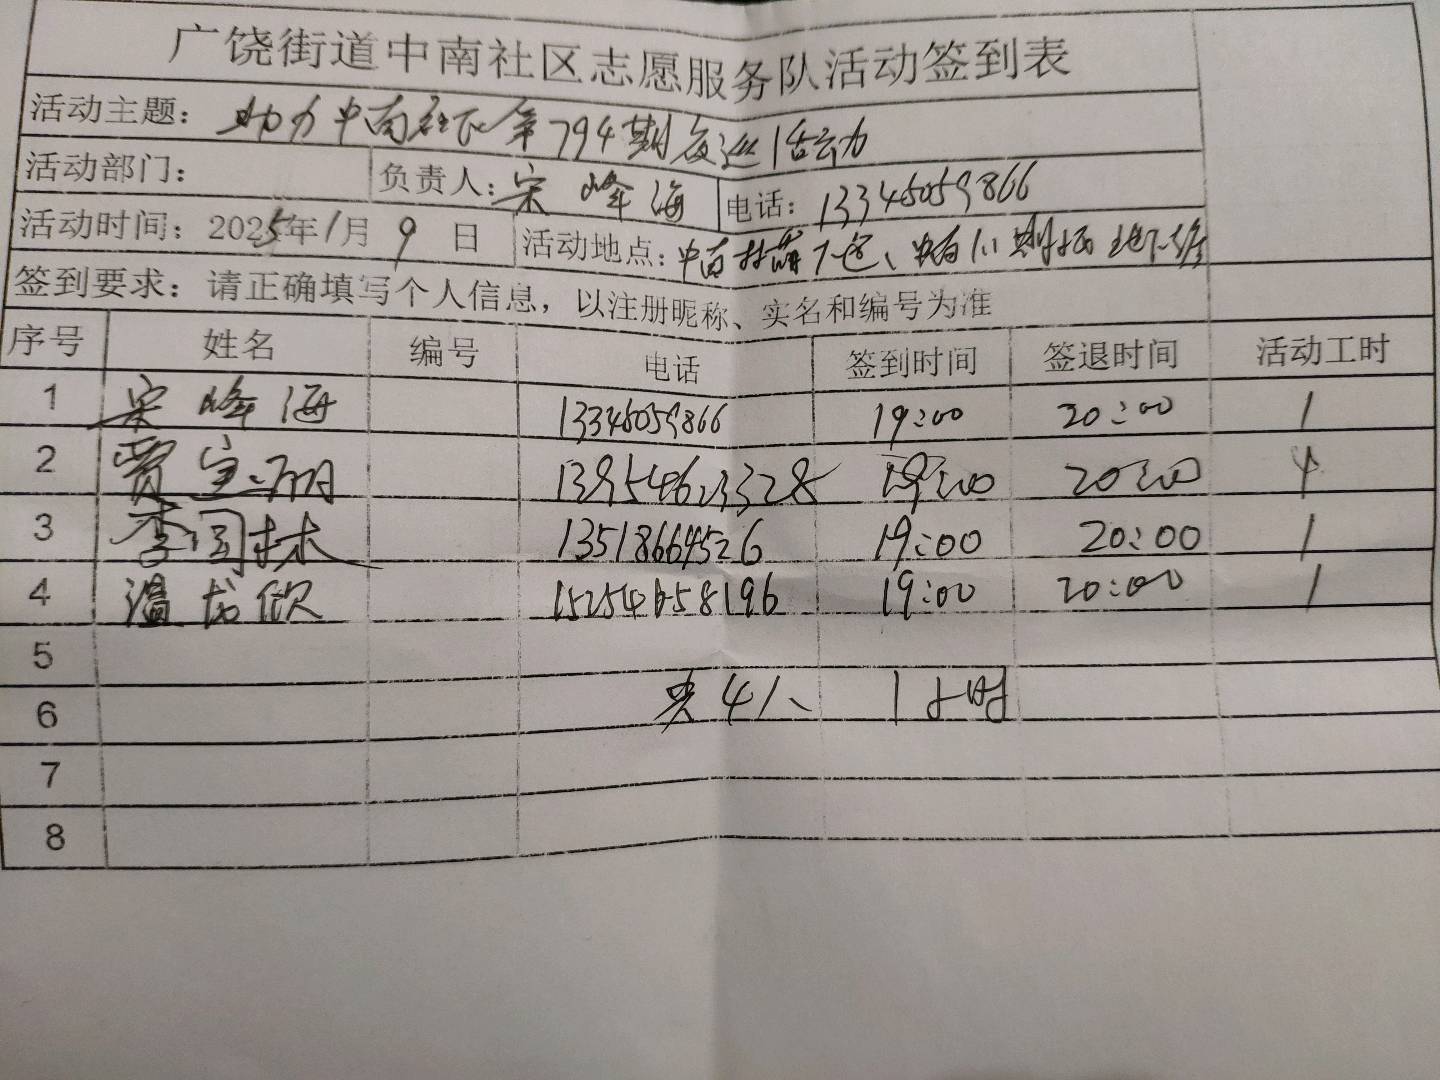 广饶街道中南社区志愿服务队活动签到表
活动主题：助力中南社区第794期夜巡活动
活动部门： 负责人：宋峰海 电话：13345059866
活动时间：2025年1月9日 活动地点：中南
签到要求：请正确填写个人信息，以注册昵称、实名和编号为准
序号 姓名 编号 电话 签到时间 签退时间 活动工时
1 宋峰海 13345059866 19:00 20:00 1
2 贾宝丽 19:00 20:00
3 李国林 13518664526 19:00 20:00 1
4 温龙欣 15254658196 19:00 20:00 1
5
6 共4人 1小时
7
8